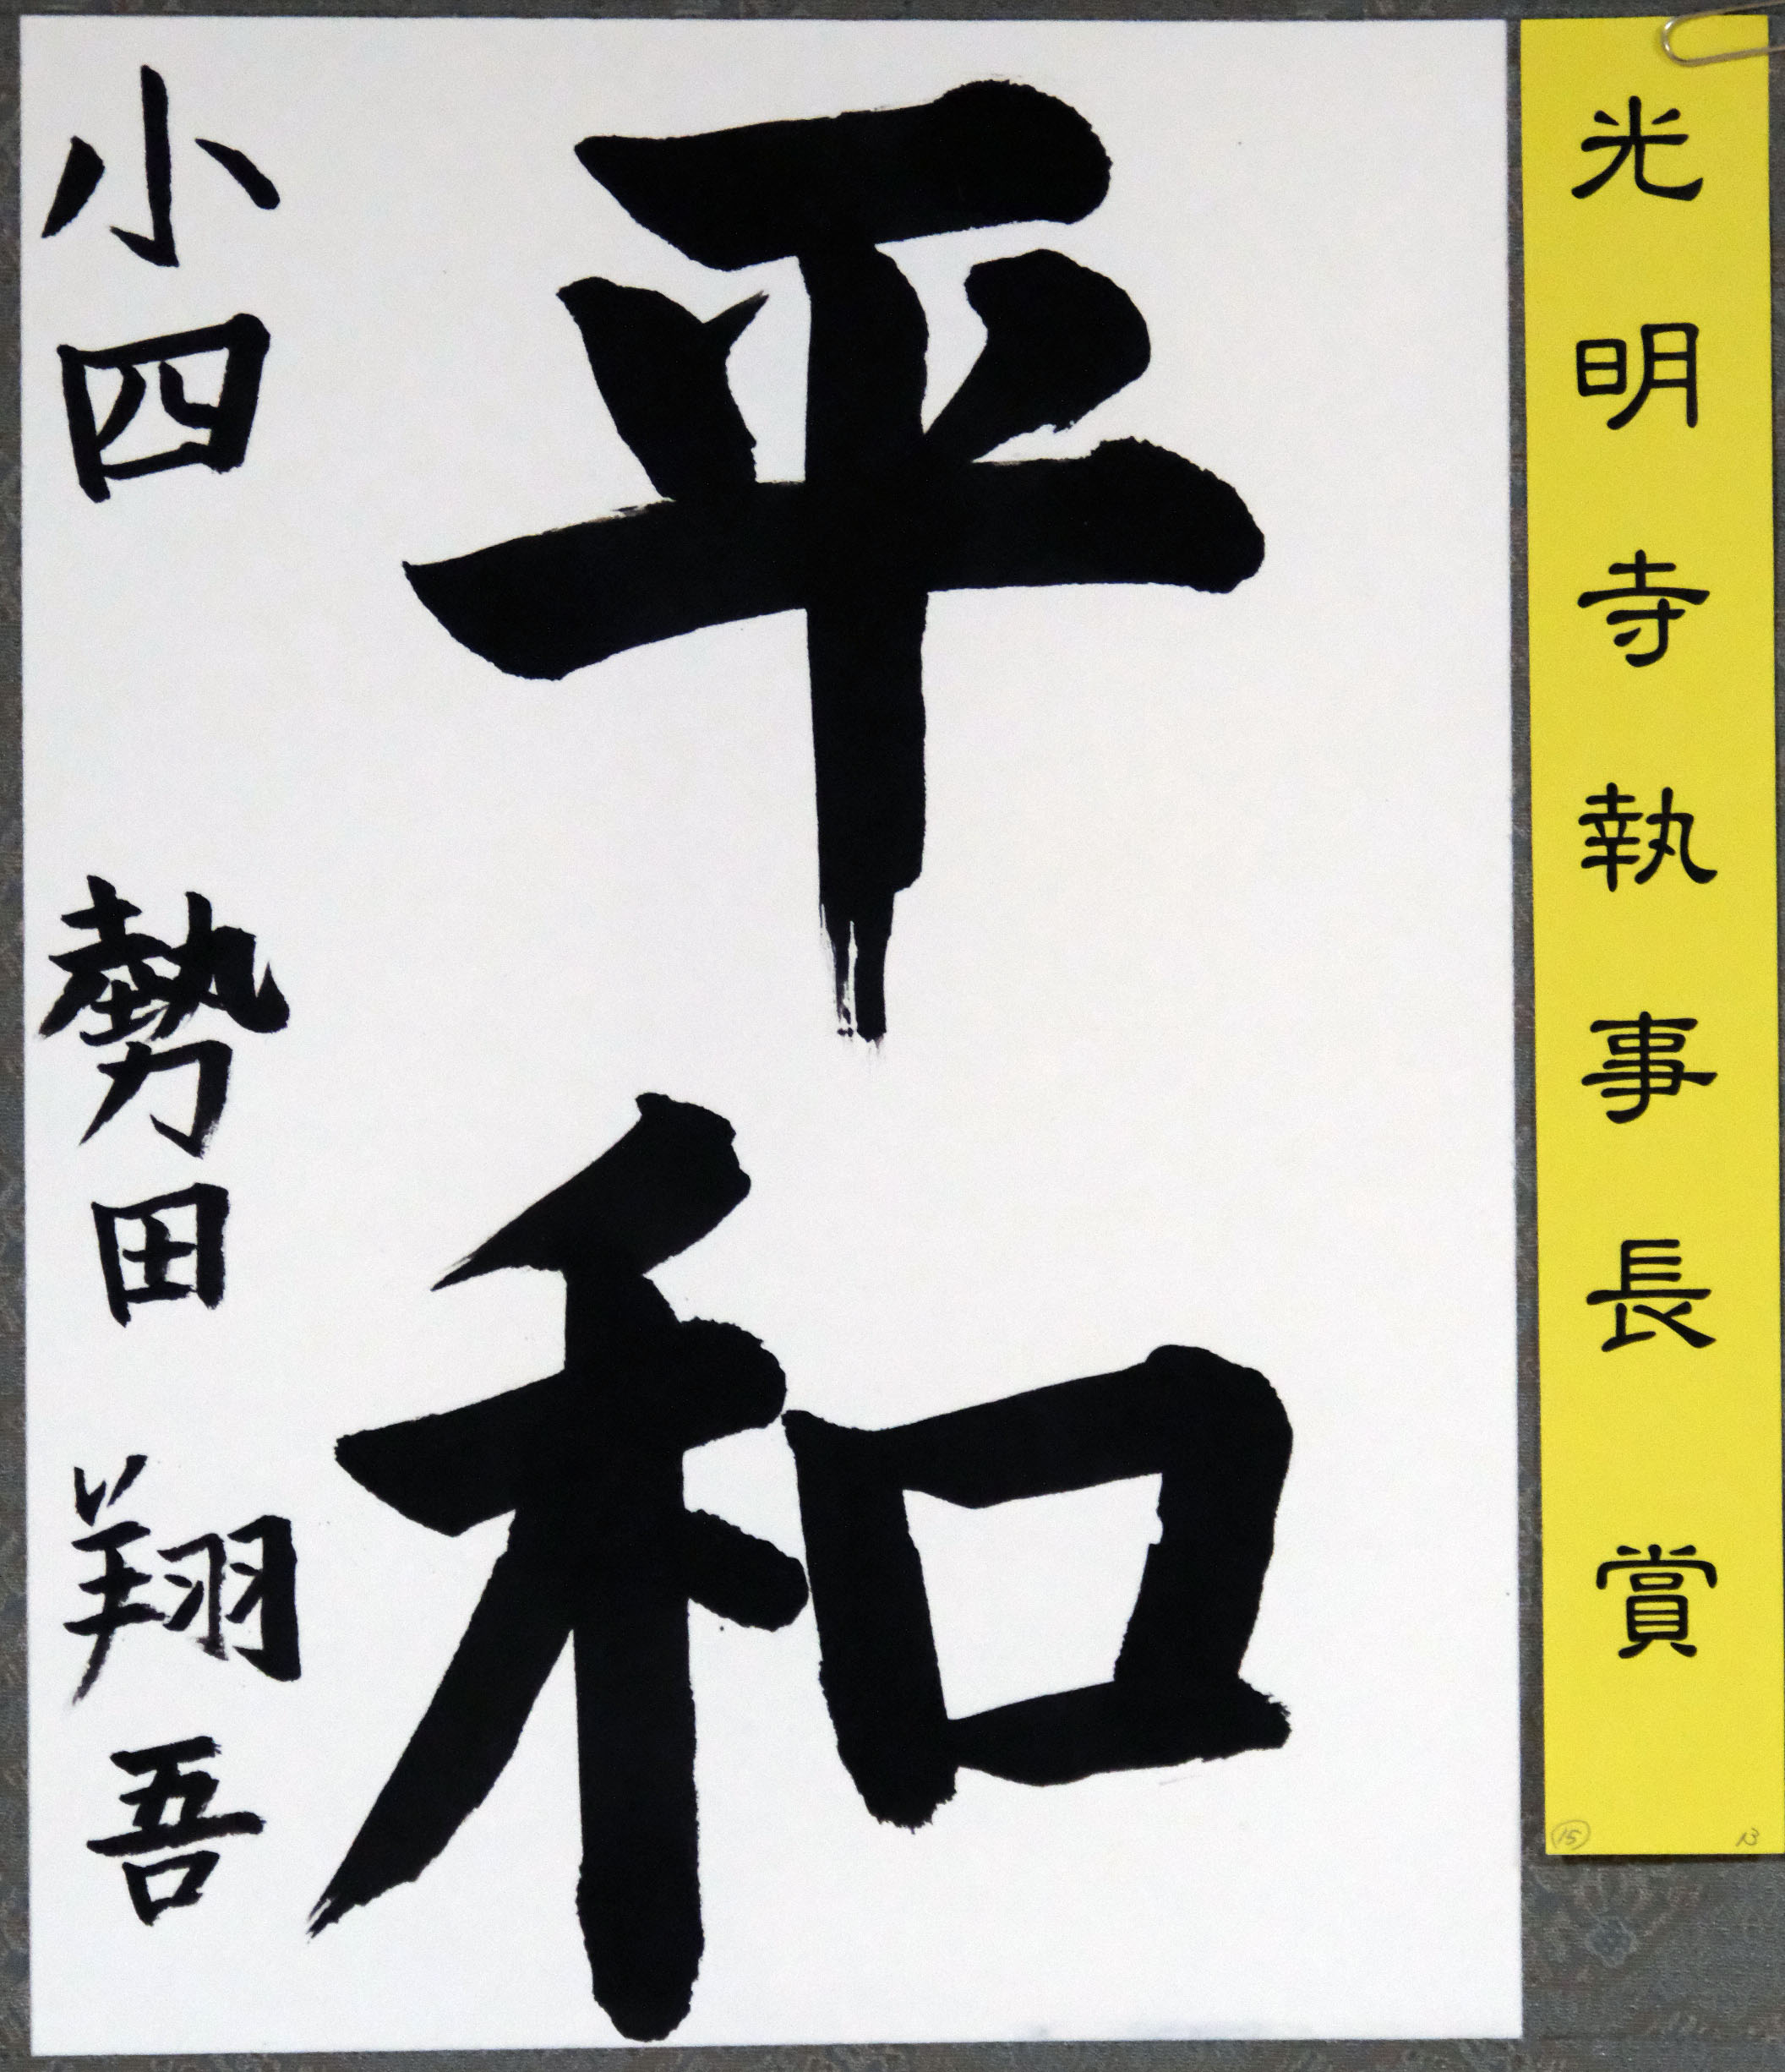 光明寺執事長賞
平和
小四 勢田翔吾
15
13